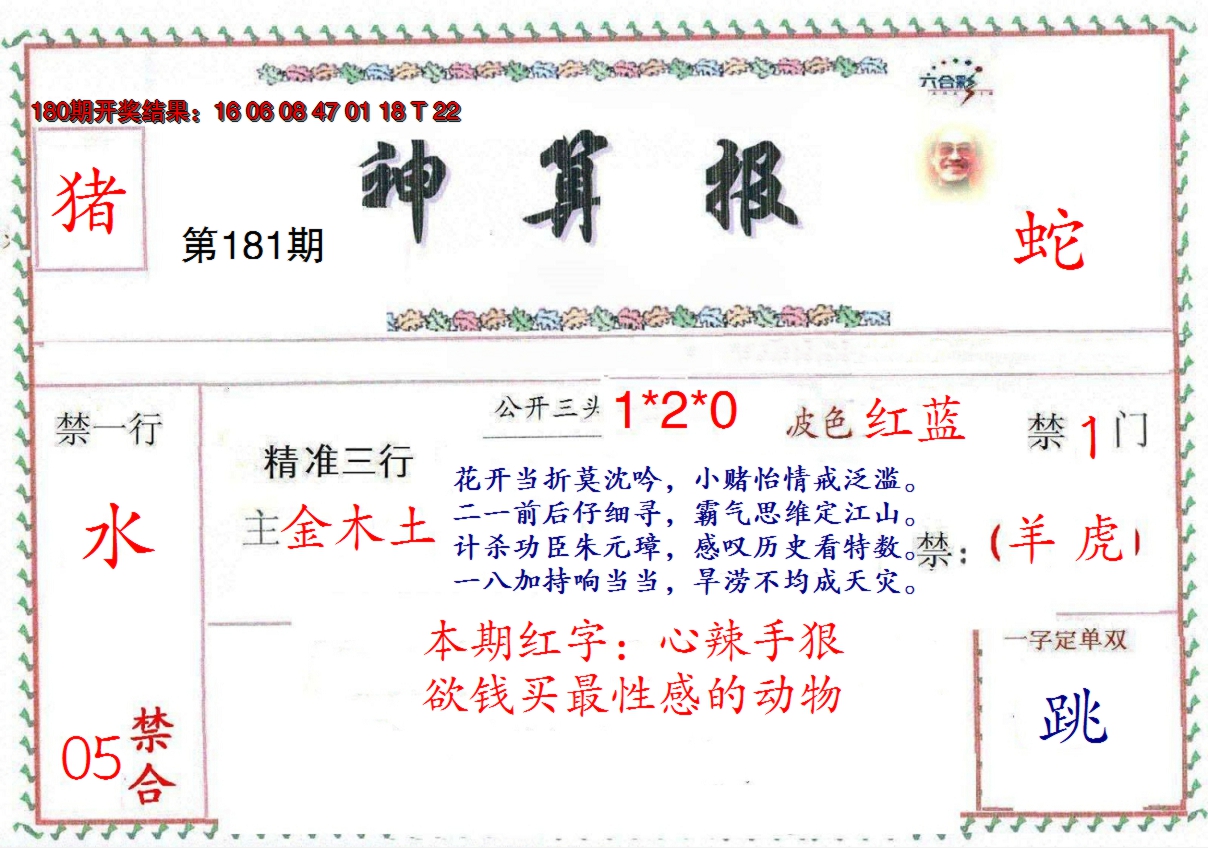 六合彩
180期开奖结果：16 06 08 47 01 18 T 22
神算报
猪
第181期
蛇
公开三头 1*2*0
波色 红蓝
禁 1 门
禁一行
水
精准三行
主 金木土
花开当折莫沈吟，小赌怡情戒泛滥。
二一前后仔细寻，霸气思维定江山。
计杀功臣朱元璋，感叹历史看特数。
一八加持响当当，旱涝不均成天灾。
禁：（羊 虎）
本期红字：心辣手狠
欲钱买最性感的动物
一字定单双
跳
05 禁合